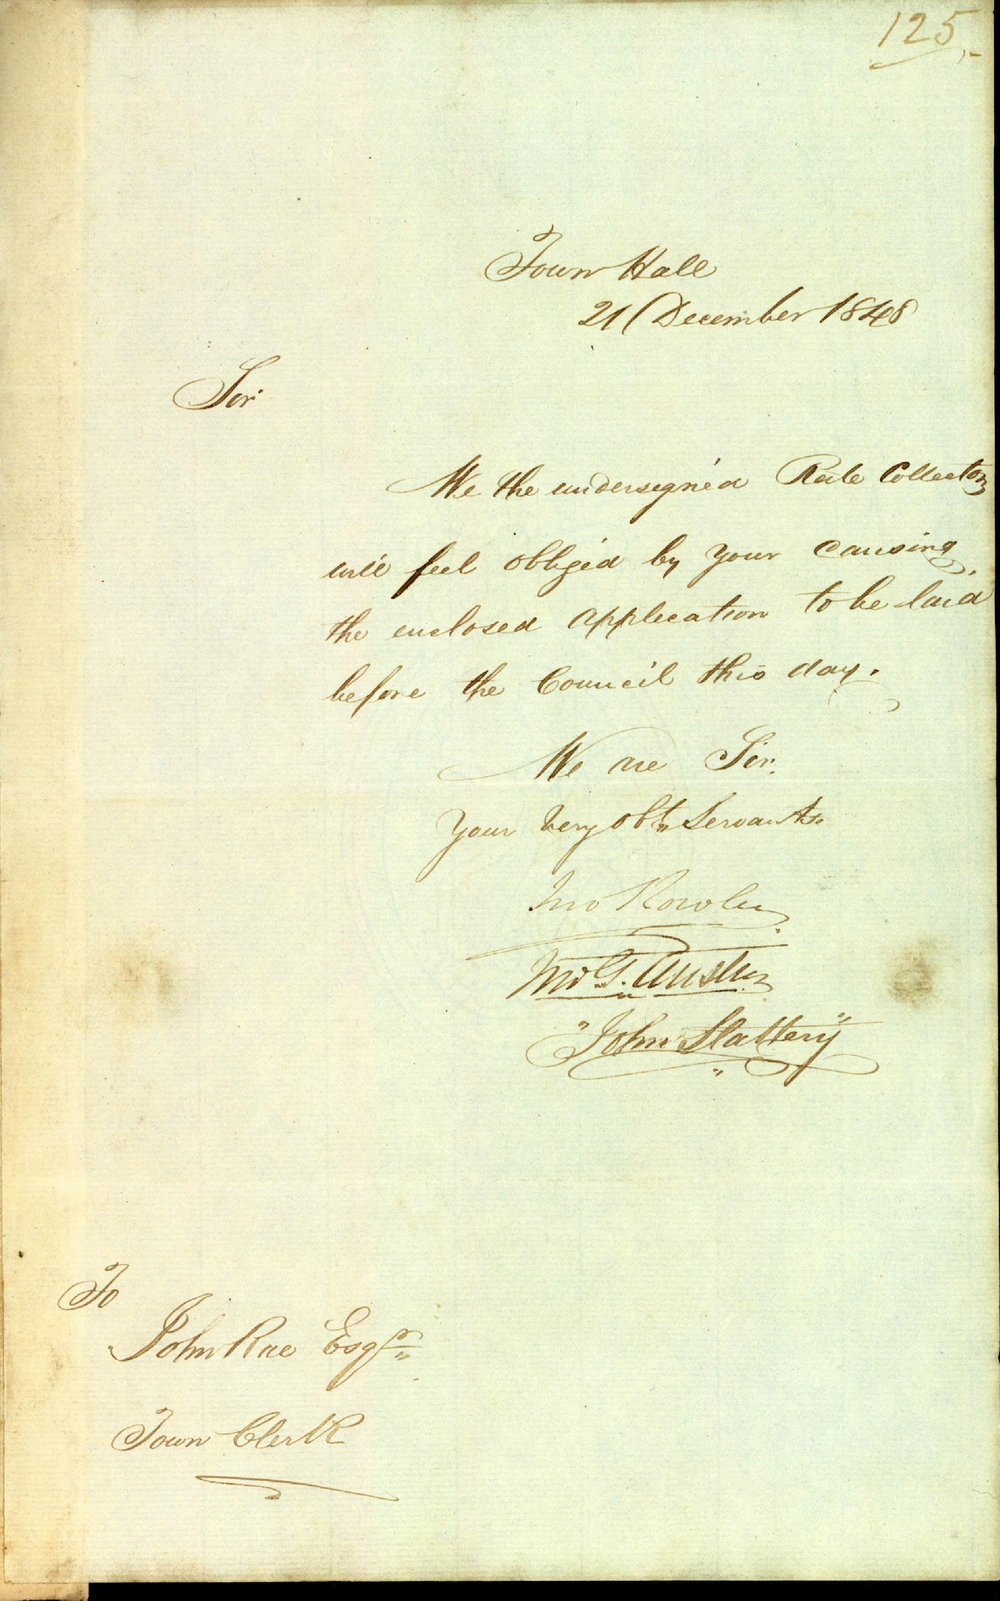 125,-
Town Hall
21 December 1848
Sir
We the undersigned Rate Collectors
will feel obliged by your causing
the enclosed application to be laid
before the Council this day.
We are Sir.
Your Very Obt. Servants
Jno
G. Austin
"John Slattery"
To
John Rae Esqr
Town Clerk